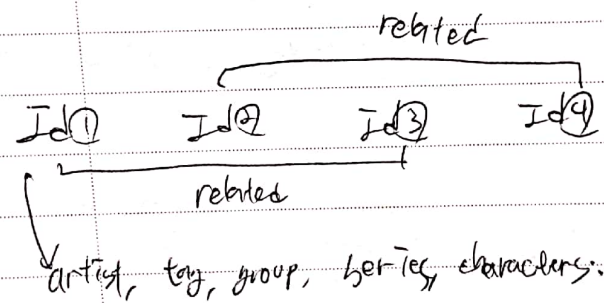 related
Id① Id② Id③ Id④
related
artist, tag, group, series, characters.